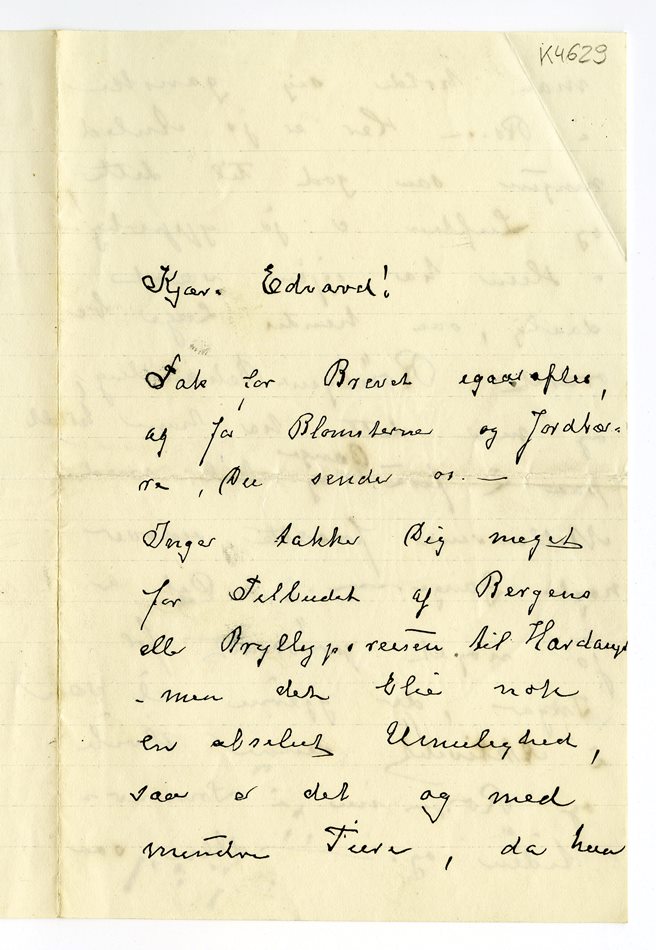 K4629
Kjære Edvard!
Tak for Brevet igaaraftes,
og for Blomsterne og Jordbær-
re, Du sender os. —
Inger takker Dig meget
for Tilbudet af Bergens
eller Bryllupsreisen til Hardanger
- men det blir nok
en absolut Umulighed,
saa er det og med
mindre Turer, da hun